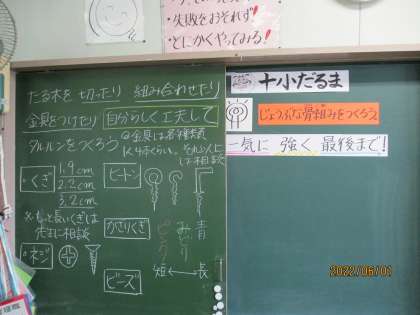 ・失敗をおそれず!
・とにかくやってみる!
たる木を 切ったり 組み合わせたり
金具をつけたり 自分らしく工夫して
タルルンをつくろう
※金具は各種類
1~4本くらい。それ以上
は相談
・くぎ
1.9cm
2.2cm
3.2cm
※もっと長いくぎは
先生に相談
・ネジ
ヒートン
かざりくぎ
ピンク
みどり
青
短 ↔ 長
ビーズ
十小だるま
じょうぶな骨組みをつくろう
一気に 強く 最後まで!
2022/06/01